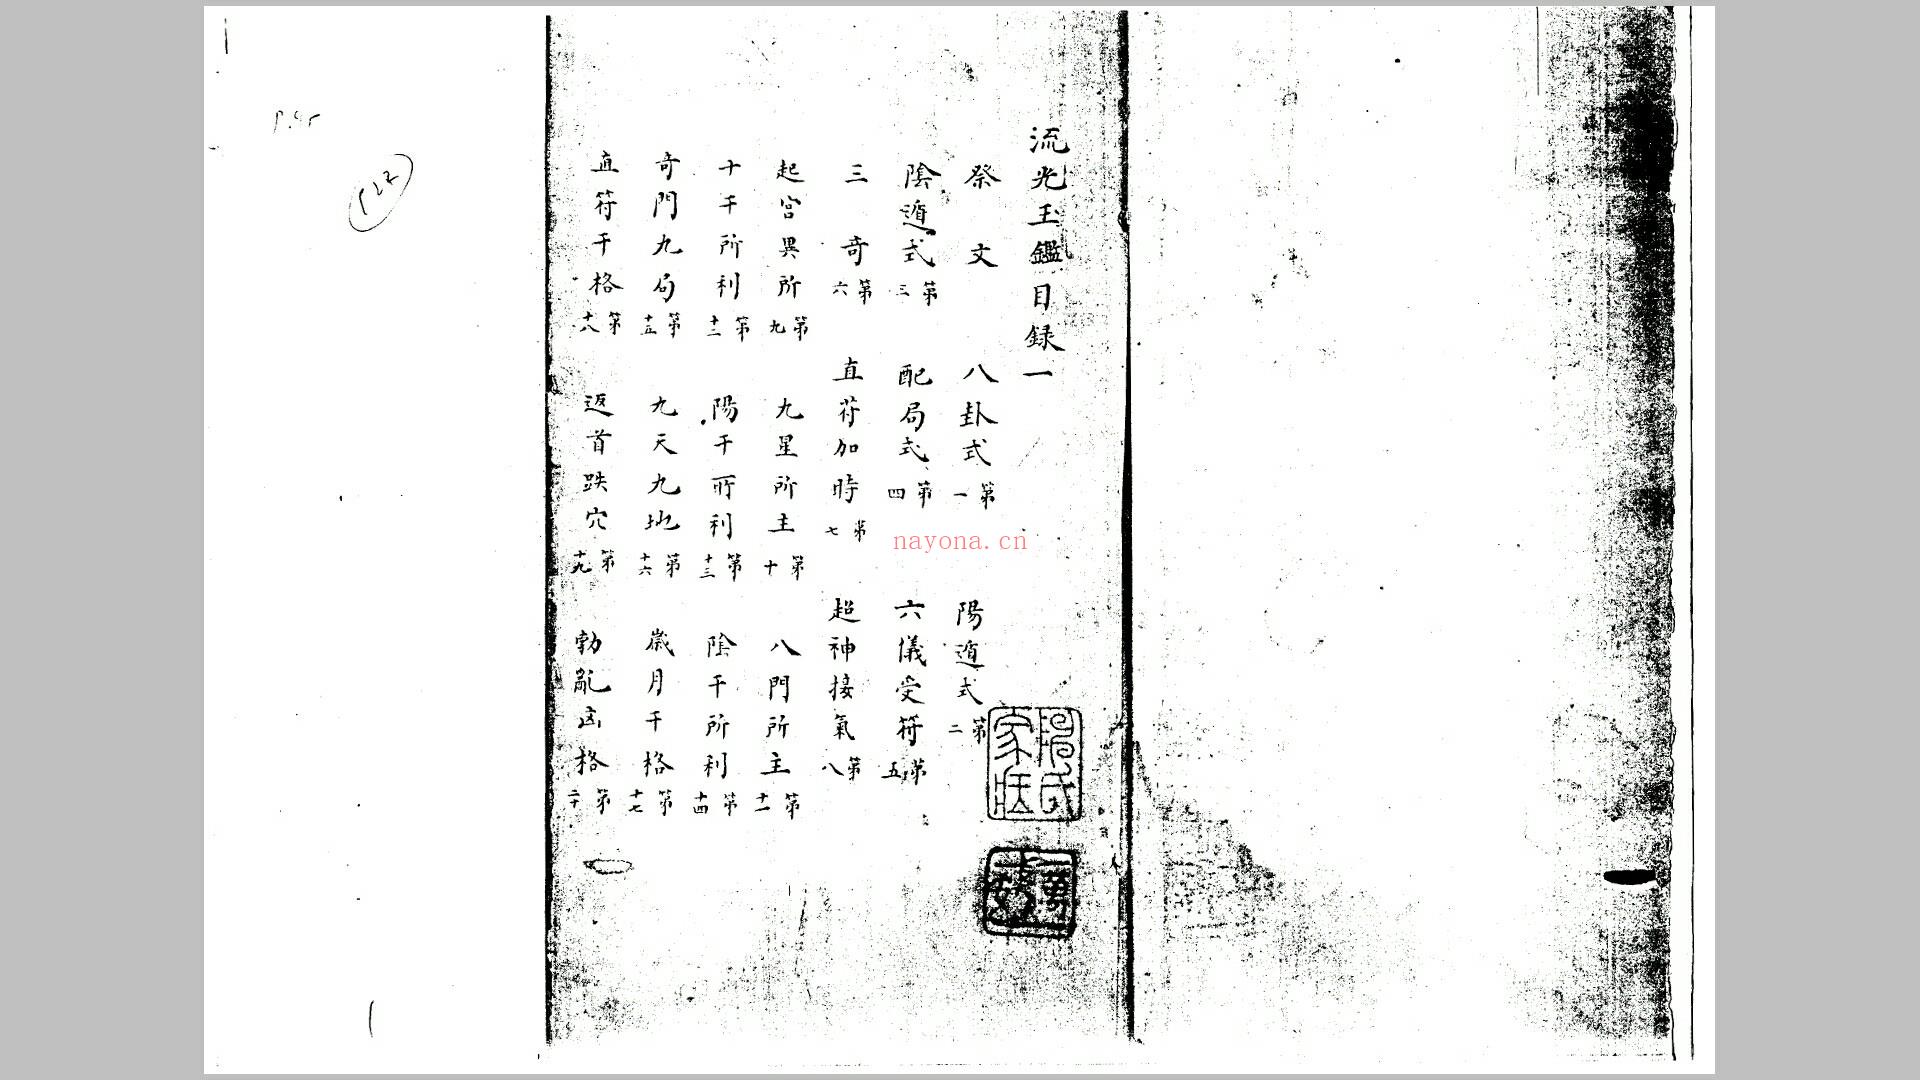 流光玉鑑目録一
祭文 八卦式第一 陽遁式第二
陰遁式第三 配局式第四 六儀受符第五
三奇第六 直符加時第七 超神接氣第八
起宮異所第九 九星所主第十 八門所主第十一
十干所利第十二 陽干所利第十三 陰干所利第十四
奇門九局第十五 九天九地第十六 歲月干格第十七
直符干格第十八 返首跌穴第十九 勃亂凶格第二十
nayona.cn